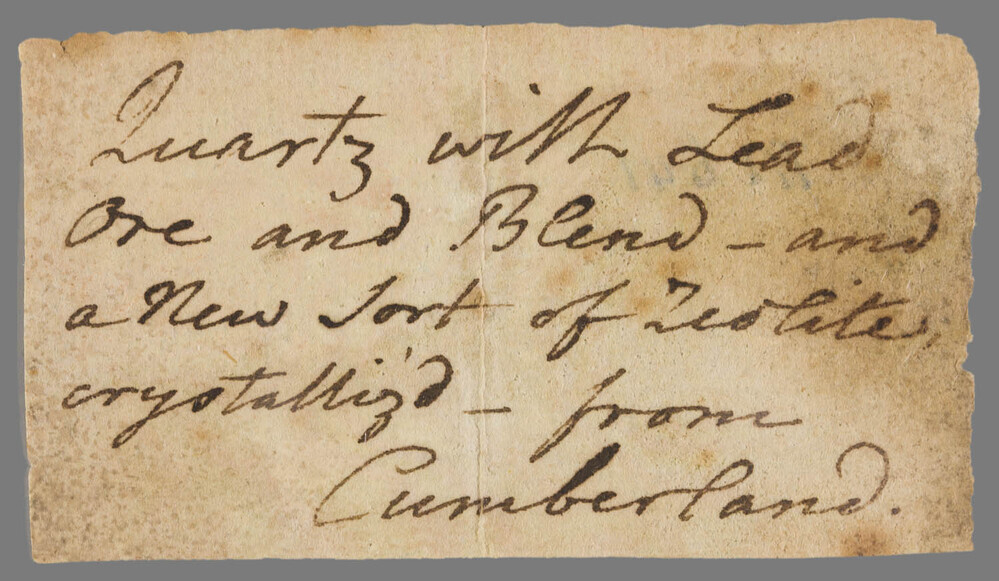 Quartz with Lead
Ore and Blend – and
a New Sort of Zeolite,
crystalliz'd – from
Cumberland.